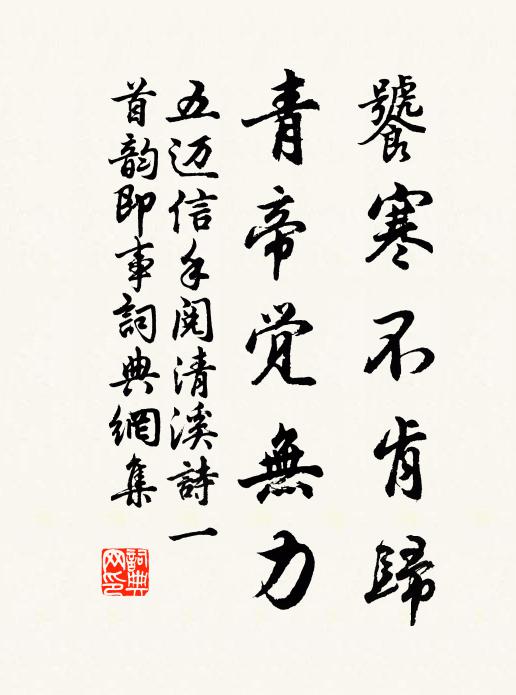 饕寒不肯歸
青帝覺無力
五迈信手閱清溪詩一
首韵即事詞典網集
詞典网印